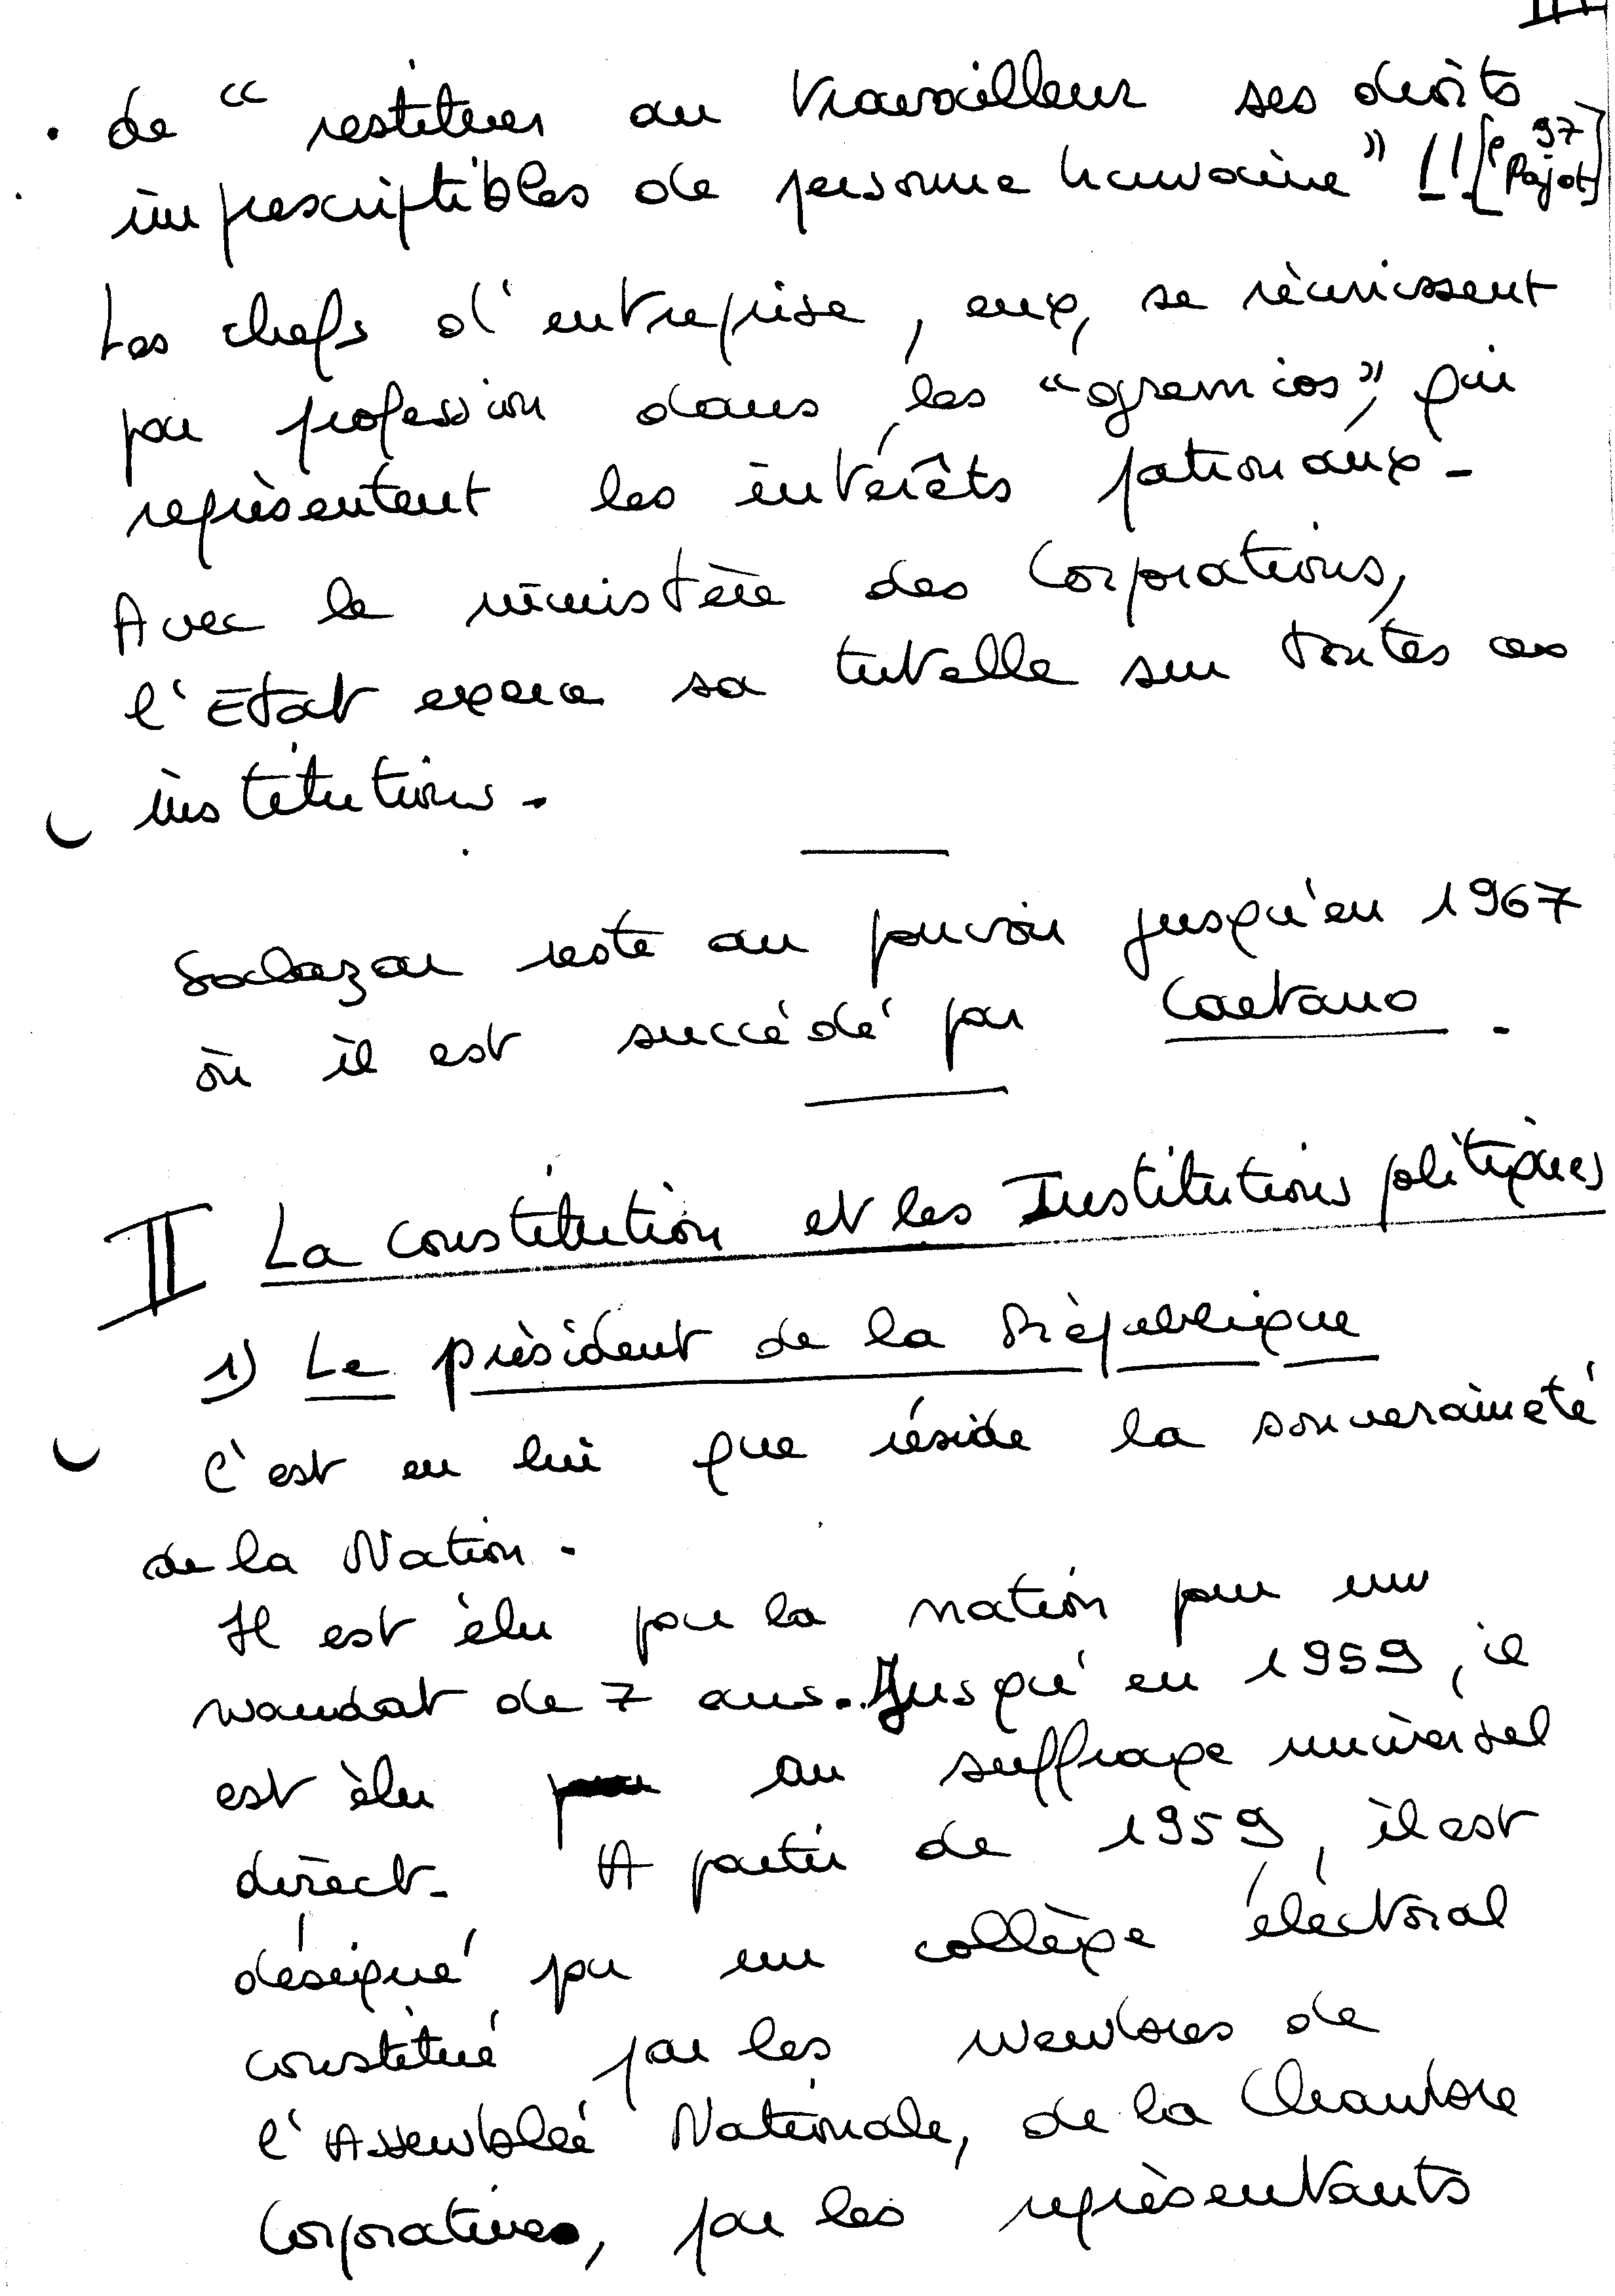 de “ restituer au travailleur ses droits
imprescriptibles de personne humaine ” !! [p 97 Pajot]
Les chefs d'entreprise, eux, se réunissent
par profession dans les “gremios”, qui
représentent les intérêts patronaux -
Avec le ministère des Corporations,
l'Etat exerce sa tutelle sur toutes ces
institutions -
Salazar reste au pouvoir jusqu'en 1967
où il est succédé par Caetano .
II La constitution et les Institutions politiques
1) Le président de la République
C'est en lui que réside la souveraineté
de la Nation -
Il est élu par la nation pour un
mandat de 7 ans. Jusqu'en 1959, il
est élu au suffrage universel
direct - A partir de 1959, il est
désigné par un collège éléctoral
constitué par les membres de
l'Assemblée Nationale, de la Chambre
Corporative, par les représentants